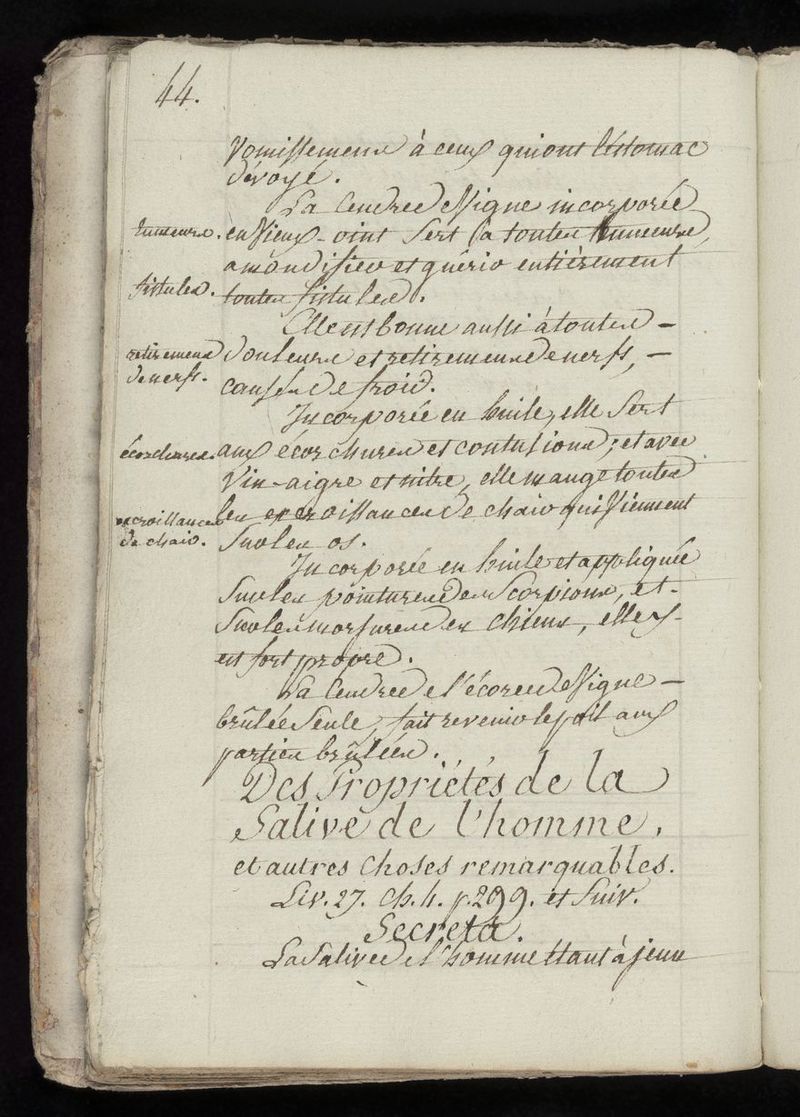 44.
vomissemens à ceux qui ont l'estomac
dévoyé.
La Cendre de Vigne incorporée
tumeurs. en Vieux-oint sert à toutes tumeurs,
a mondifier et guérir entièrement
fistules. toutes fistules.
Elle est bonne aussi à toutes -
retiremens douleurs et retiremens de nerfs, -
de nerfs. causés de froid.
Incorporée en huile, elle sert
écorchures. aux écorchures et contusions; et avec
Vin-aigre et nitre, elle mange toutes
excroissances les excroissances de chair qui Viennent
de chair. sur les os.
Incorporée en huile et appliquée
sur les pointures des Scorpions, et -
sur les morsures des chiens, elle y -
est fort propre.
La Cendre de l'écorce de Vigne -
brûlée seule, fait revenir le poil aux
parties brûlées.
Des Propriétés de la
Salive de l'homme,
et autres choses remarquables.
Liv. 27. Ch. 4. p. 299. et suiv.
Secreta.
La Salive de l'homme étant à jeun